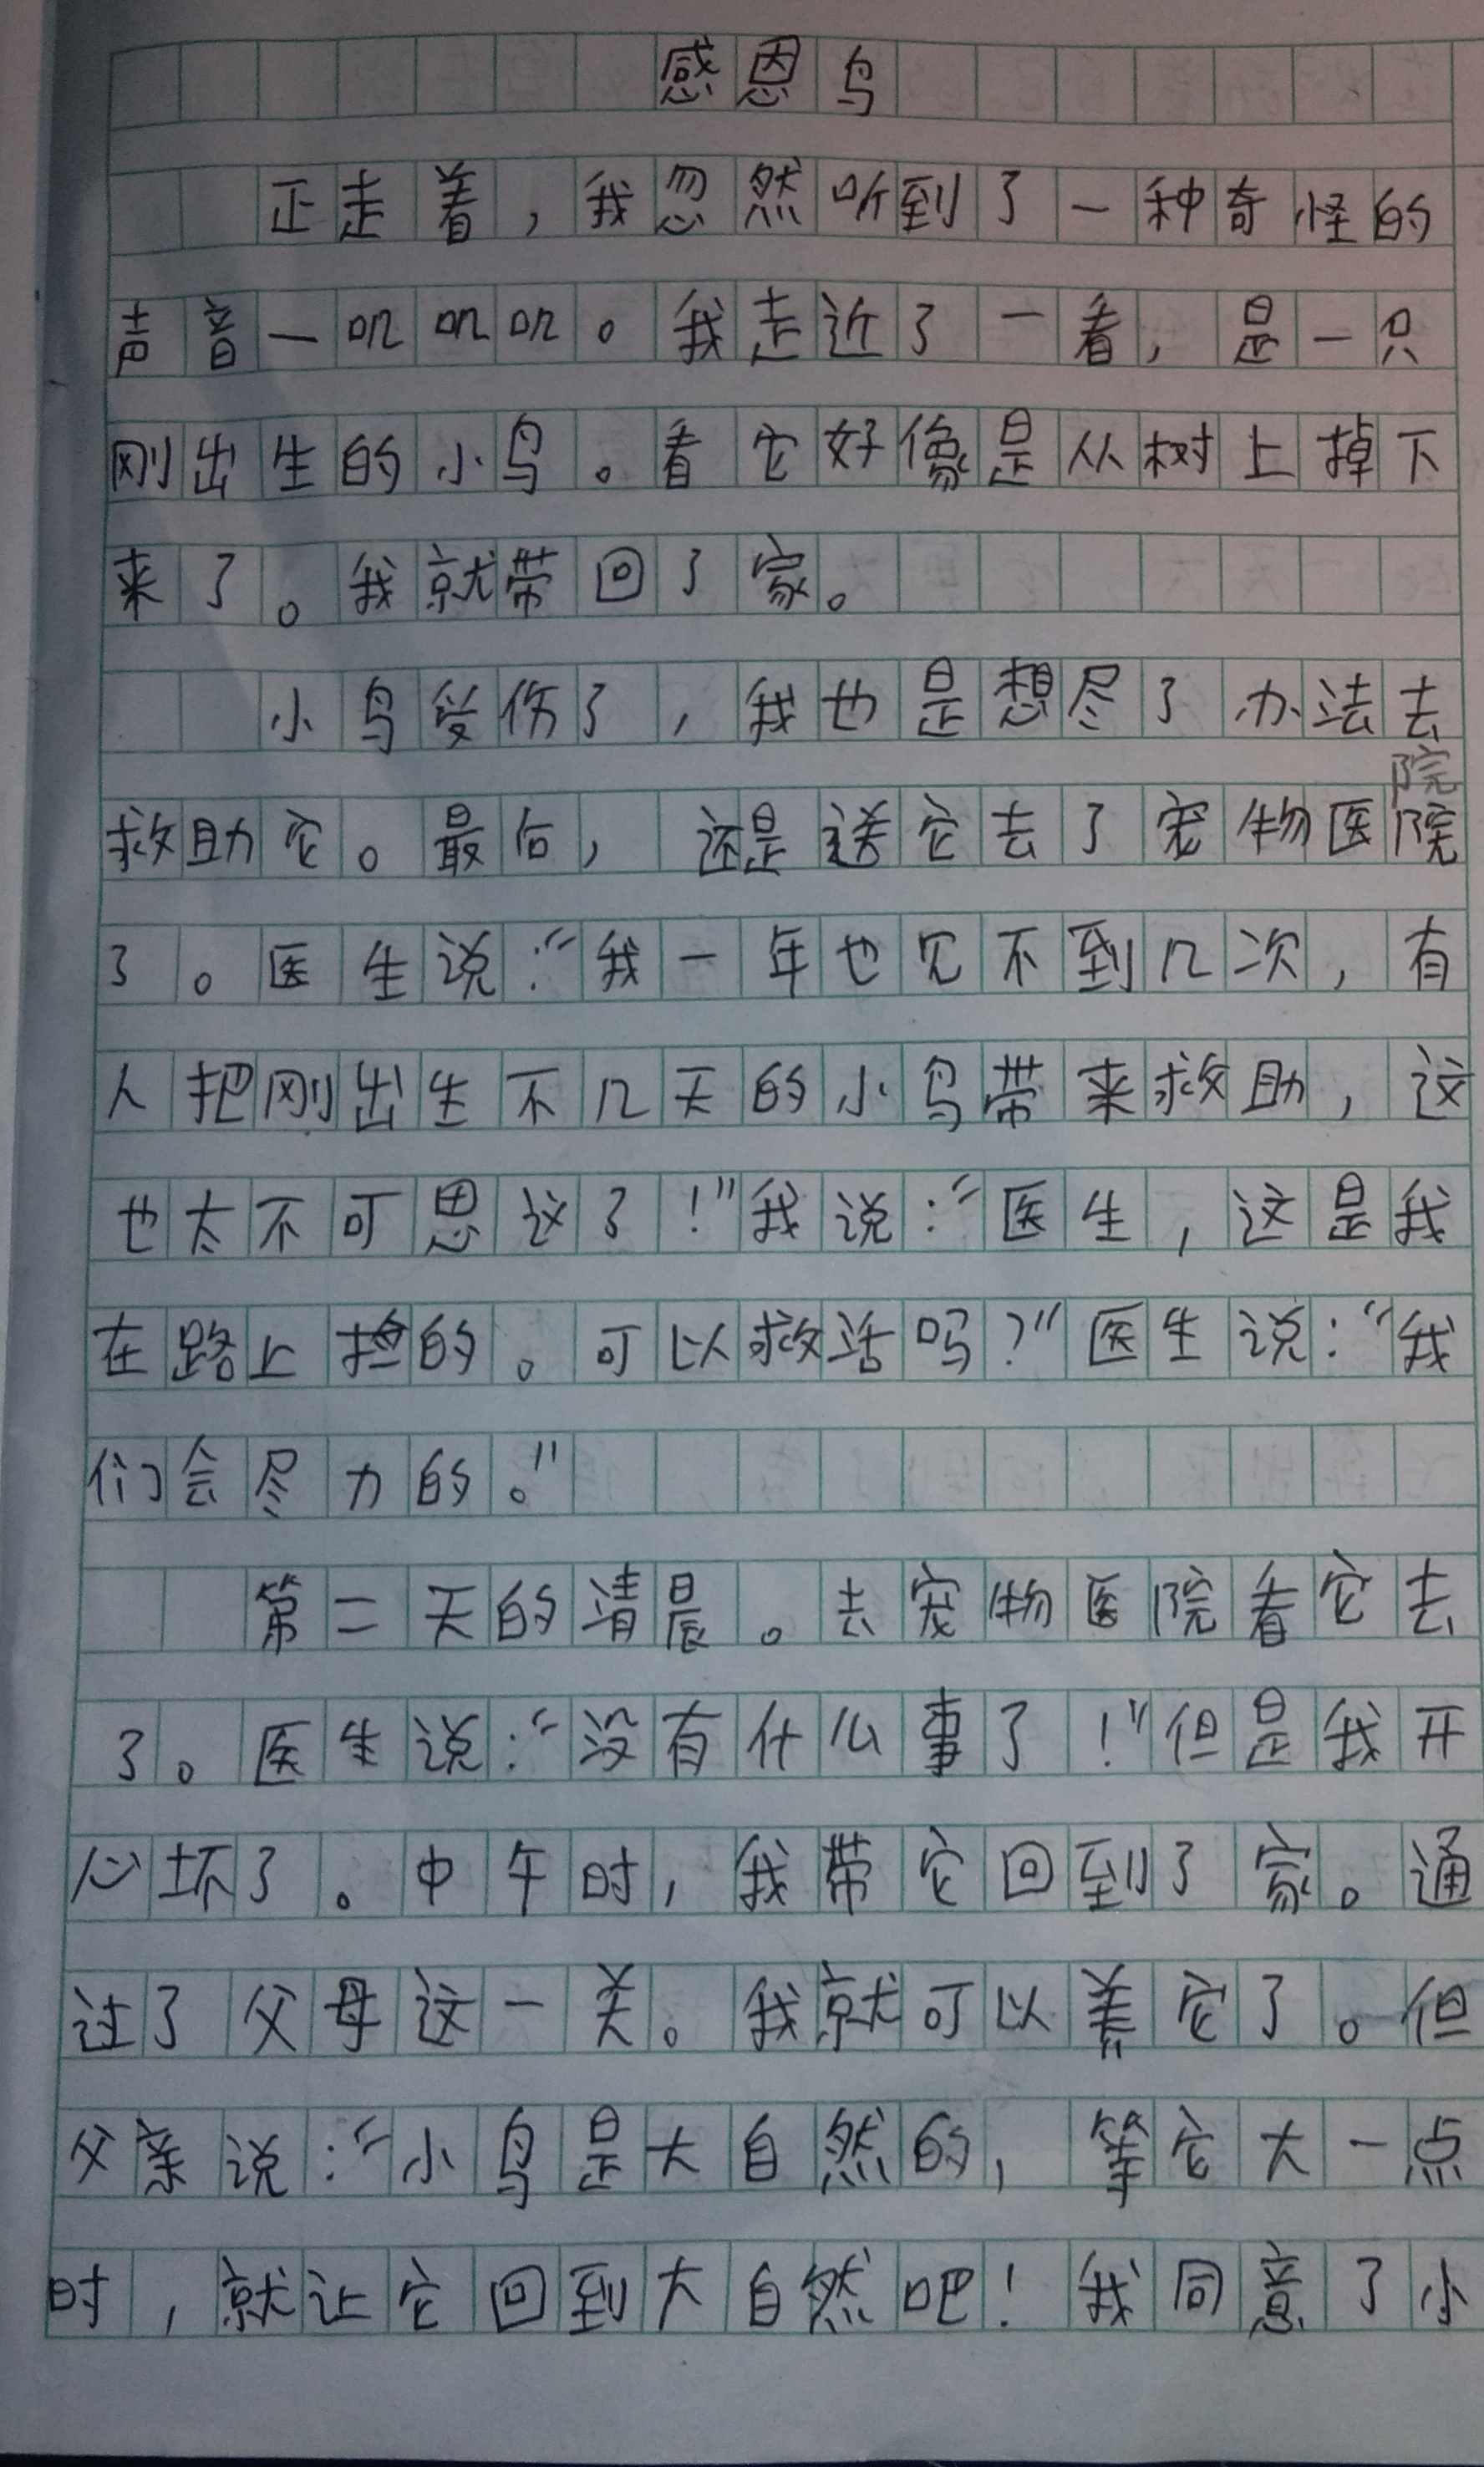 感恩鸟
正走着，我忽然听到了一种奇怪的
声音—吼吼吼。我走近了一看，是一只
刚出生的小鸟。看它好像是从树上掉下
来了。我就带回了家。
小鸟受伤了，我也是想尽了办法去
院
救助它。最后，还是送它去了宠物医院
了。医生说：“我一年也见不到几次，有
人把刚出生不几天的小鸟带来救助，这
也太不可思议了！”我说：“医生，这是我
在路上捡的。可以救活吗？”医生说：“我
们会尽力的。”
第二天的清晨。去宠物医院看它去
了。医生说：“没有什么事了！”但是我开
心坏了。中午时，我带它回到了家。通
过了父母这一关。我就可以养它了。但
父亲说：“小鸟是大自然的，等它大一点
时，就让它回到大自然吧！我同意了小